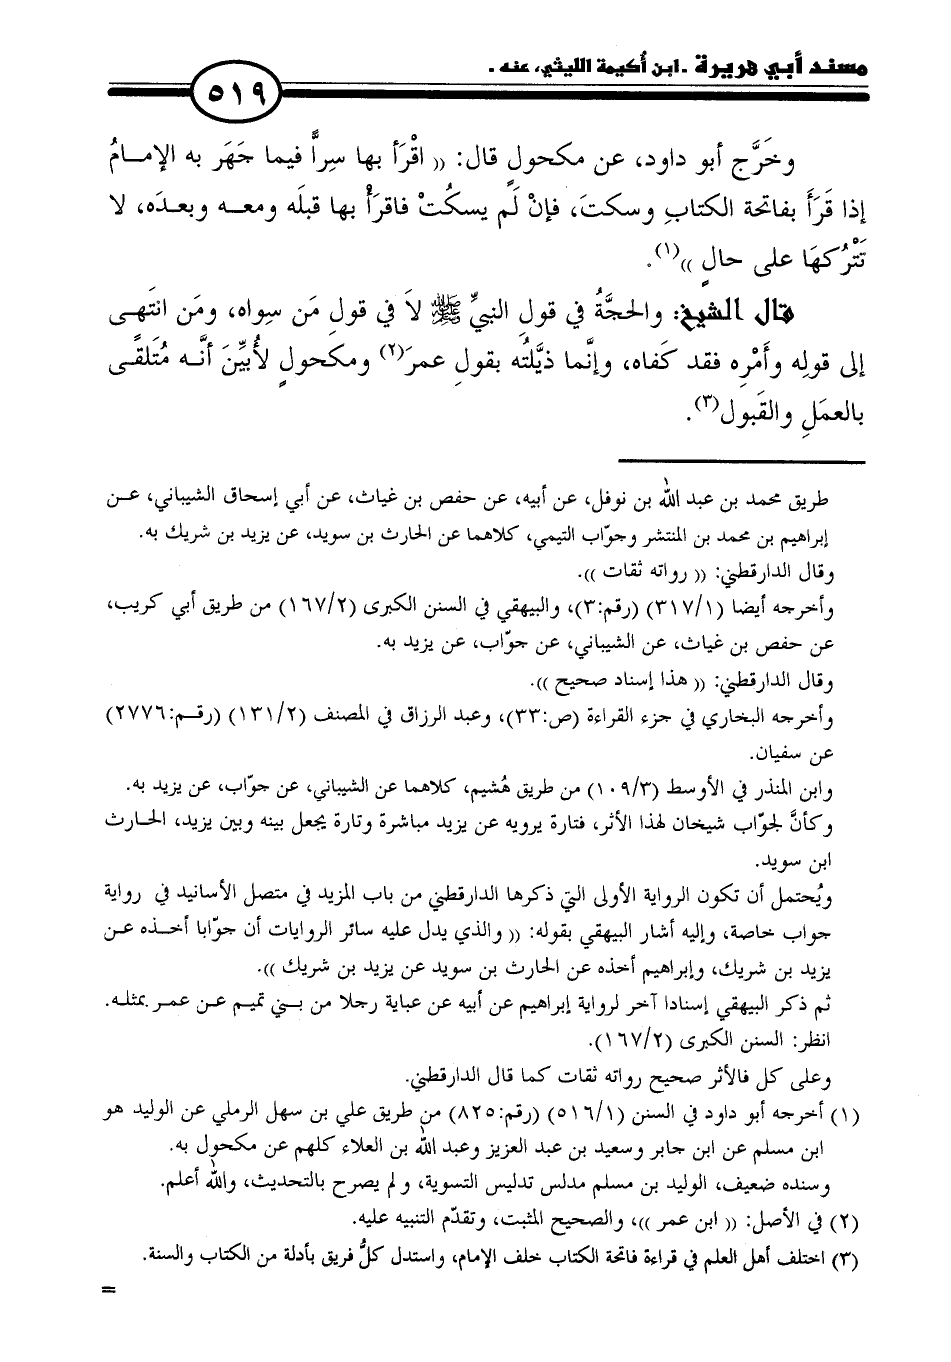 مسند أبي هريرة - ابن أُكيمة الليثي، عنه -
٥١٩
وخَرَّج أبو داود، عن مكحولٍ قال: (( اقْرَأ بها سِراًّ فيما جَهَر به الإمـامُ
إذا قَرَأَ بفاتحة الكتابِ وسكتَ، فإنْ لَم يسكُتْ فاقرَأْ بها قبلَه ومعـه وبعـدَه، لا
تَتْرُكهَا على حالٍ ))(١).
قال الشيخ: والحجَّةُ في قولِ النبيِّ ﷺ لاَ في قولِ مَن سِواه، ومَن انتَهـى
إلى قولِه وأَمْرِه فقد كَفاه، وإنَّما ذيَّلتُه بقولِ عمرَ(٢) ومكحولٍ لأُبيِّنَ أنَّـه مُتَلقًّـى
بالعمَلِ والقَبول(٣).
طريق محمد بن عبد الله بن نوفل، عن أبيه، عن حفص بن غياث، عن أبي إسحاق الشيباني، عـن
إبراهيم بن محمد بن المنتشر وجوّاب التيمي، كلاهما عن الحارث بن سويد، عن يزيد بن شريك به.
وقال الدارقطني: (( رواته ثقات )).
وأخرجه أيضا (٣١٧/١) (رقم:٣)، والبيهقي في السنن الكبرى (١٦٧/٢) من طريق أبي كريب،
عن حفص بن غياث، عن الشيباني، عن جوّاب، عن يزيد به.
وقال الدارقطني: (( هذا إسناد صحيح )).
وأخرجه البخاري في جزء القراءة (ص:٣٣)، وعبد الرزاق في المصنف (١٣١/٢) (رقـم:٢٧٧٦)
عن سفيان.
وابن المنذر في الأوسط (١٠٩/٣) من طريق هُشيم، كلاهما عن الشيباني، عن جوّاب، عن يزيد به.
وكأنَّ لجوّاب شيخان لهذا الأثر، فتارة يرويه عن يزيد مباشرة وتارة يجعل بينه وبين يزيد، الحـارث
ابن سويد.
ويُحتمل أن تكون الرواية الأولى التي ذكرها الدارقطني من باب المزيد في متصل الأسانيد في رواية
جواب خاصة، وإليه أشار البيهقي بقوله: (( والذي يدل عليه سائر الروايات أن جوّابا أخـذه عـن
يزيد بن شريك، وإبراهيم أخذه عن الحارث بن سويد عن يزيد بن شريك )).
ثم ذكر البيهقي إسنادا آخر لرواية إبراهيم عن أبيه عن عباية رجلا من بـني تميـم عـن عمـر بمثلـه.
انظر: السنن الكبرى (١٦٧/٢).
وعلى كل فالأثر صحيح رواته ثقات كما قال الدارقطني.
(١) أخرجه أبو داود في السنن (٥١٦/١) (رقم:٨٢٥) من طريق علي بن سهل الرملي عن الوليد هو
ابن مسلم عن ابن جابر وسعيد بن عبد العزيز وعبد الله بن العلاء كلهم عن مكحول به.
وسنده ضعيف، الوليد بن مسلم مدلس تدليس التسوية، ولم يصرح بالتحديث، والله أعلم.
(٢) في الأصل: (( ابن عمر ))، والصحيح المثبت، وتقدّم التنبيه عليه.
(٣) اختلف أهل العلم في قراءة فاتحة الكتاب خلف الإمام، واستدل كلُّ فريق بأدلة من الكتاب والسنة.
=